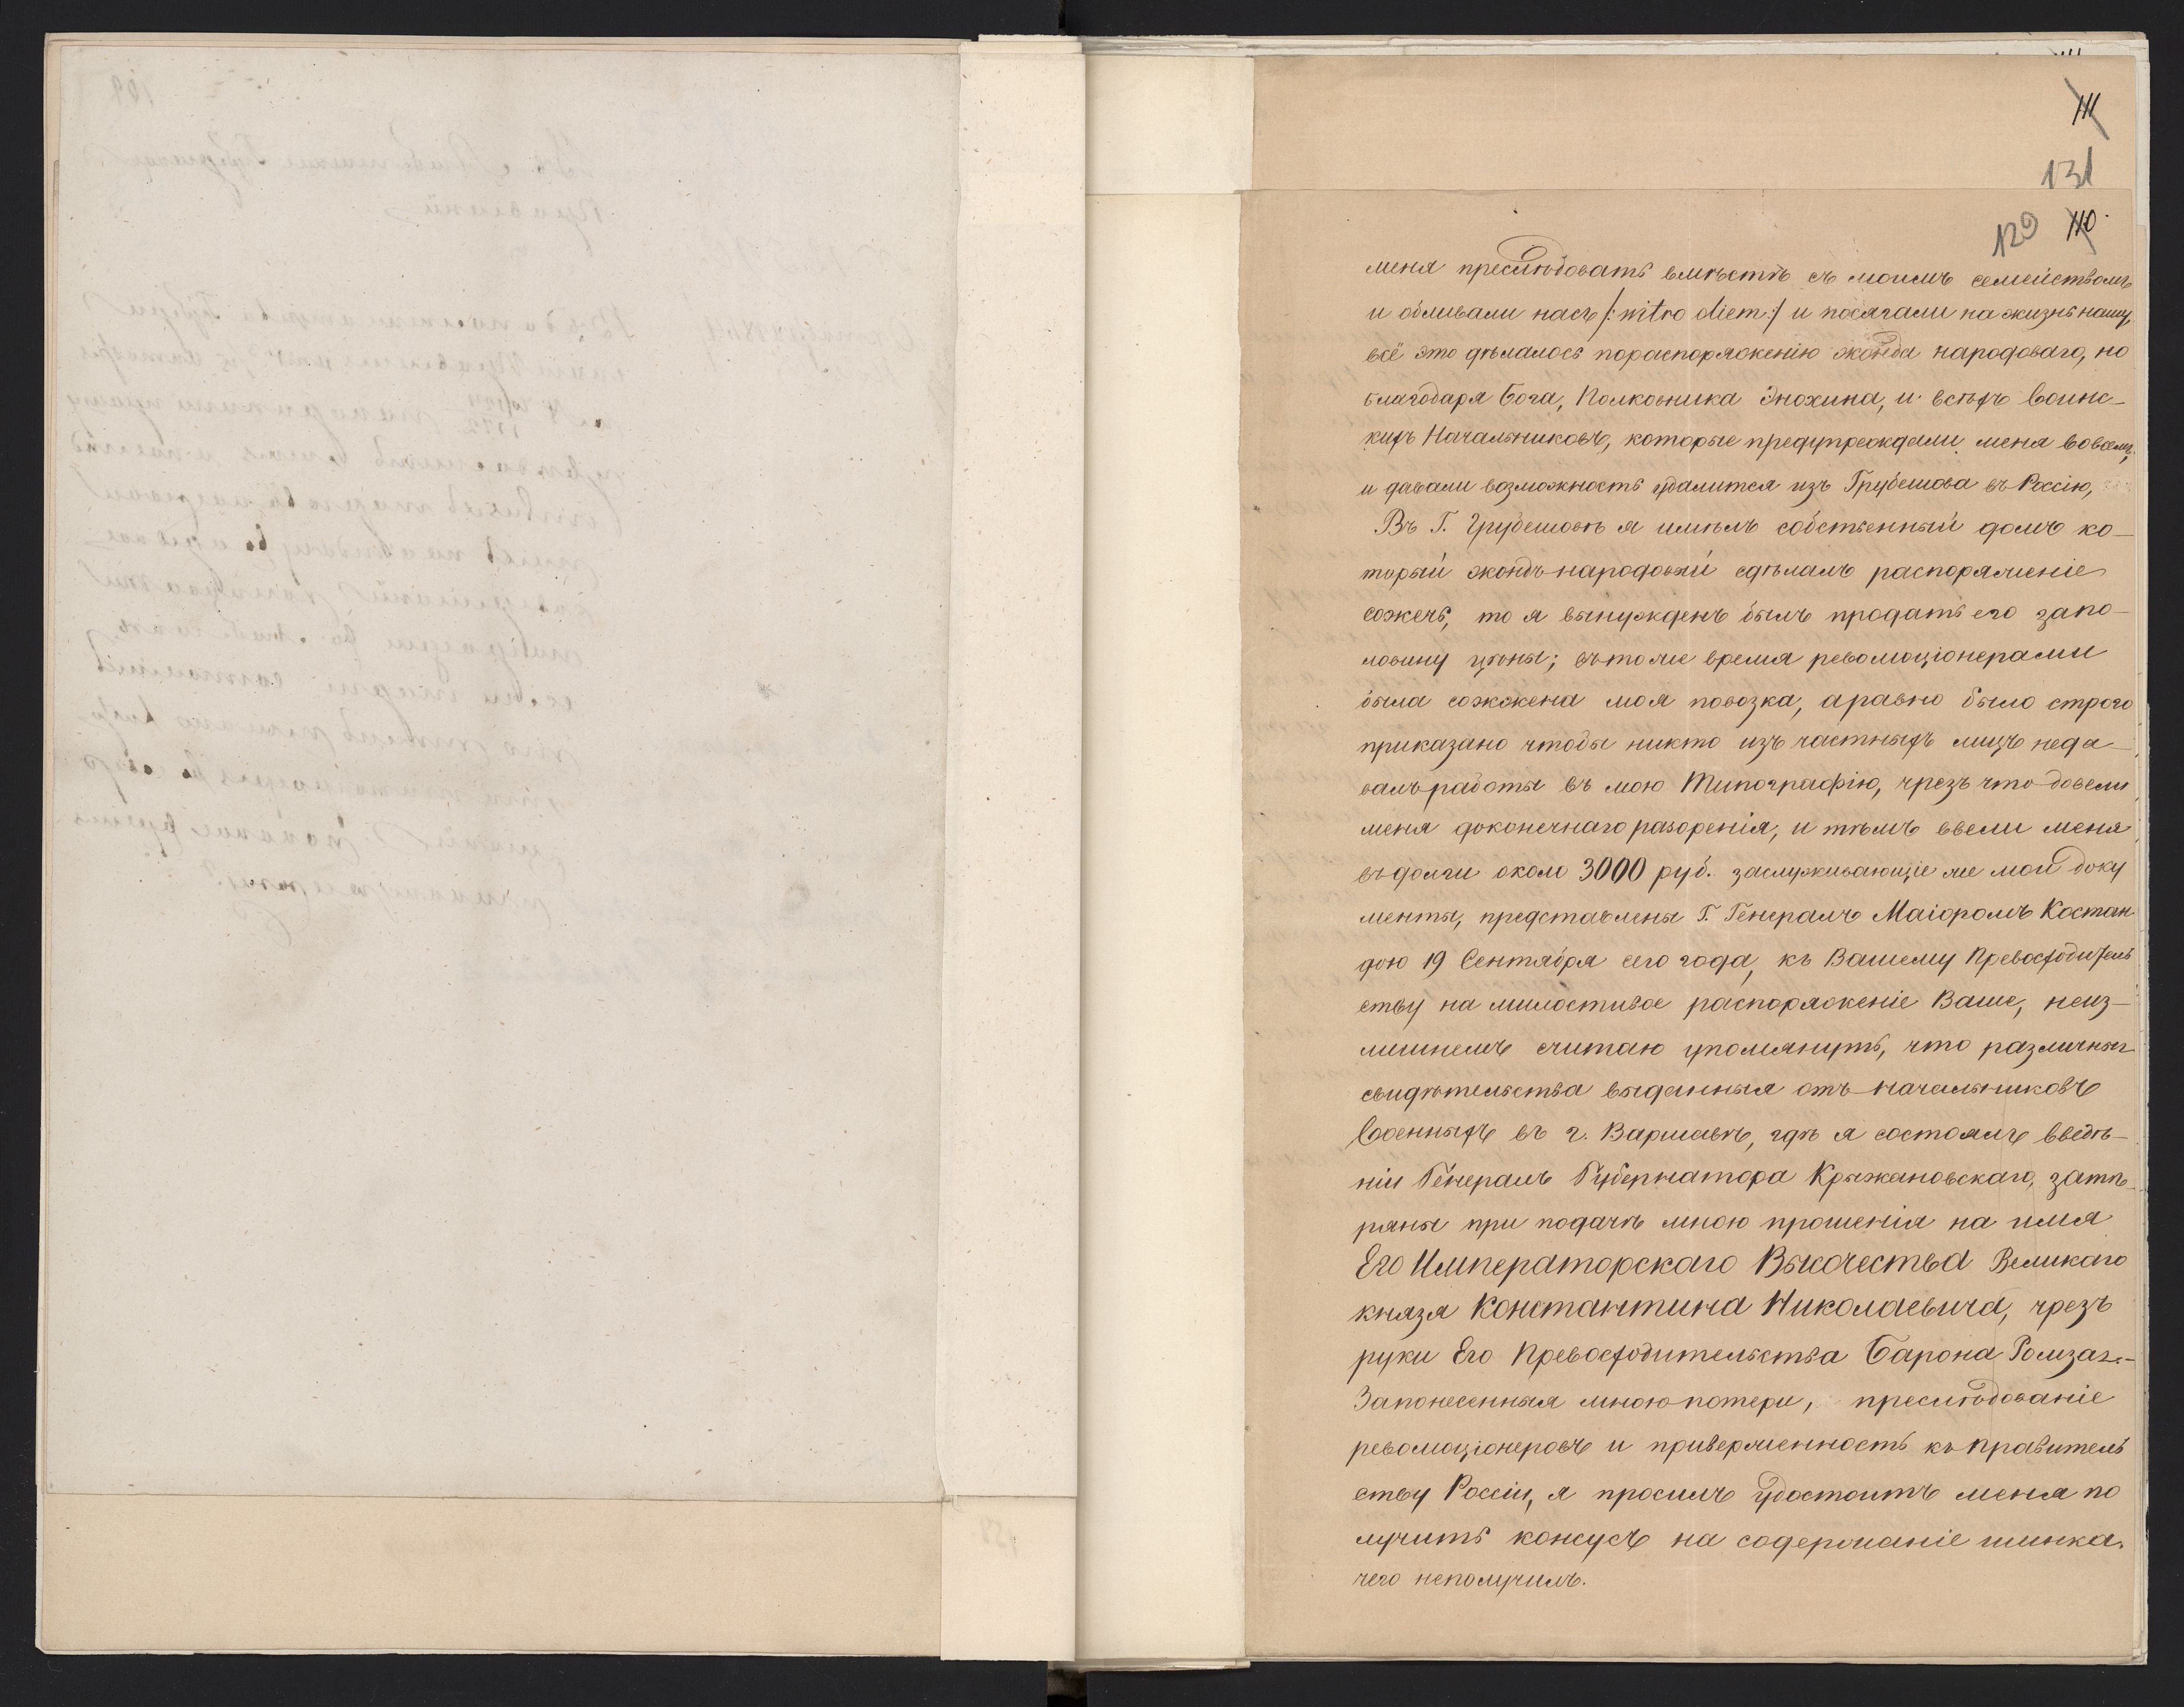 111
131
129 110
меня преслѣдовать вмѣстѣ съ моимъ семействомъ
и обливали насъ /: nitro oliem :/ и посягали на жизнь нашу,
всё это дѣлалось пораспоряженію жонда народоваго, но
благодаря Бога, Полковника Энохина, и всѣхъ Воинс-
кихъ Начальниковъ, которые предупреждали меня вовсемъ,
и давали возможность удалится изъ Грубешова въ Россію,
Въ Г. Грубешовѣ я имѣлъ собственный домъ ко-
торый жондъ народовый сдѣлалъ распоряженіе
сожечь, то я вынужденъ былъ продать его запо-
ловину цѣны; въ тоже время революціонерами
была сожжена моя повозка, аравно было строго
приказано чтобы никто изъ частныхъ лицъ неда-
валъ работы въ мою Типографію, чрезъ что довели
меня доконечнаго разоренія, и тѣмъ ввели меня
въ долги около 3000 руб. заслуживающіе же мои доку
менты, представлены Г. Генералъ Маіоромъ Костан
дою 19 Сентября сего года, къ Вашему Превосходитель
ству на милостивое распоряженіе Ваше, неиз-
лишнемъ считаю упомянуть, что различныя
свидѣтельства выданныя отъ Начальниковъ
Военныхъ въ г. Варшавѣ, гдѣ я состоялъ ввѣдѣ-
ніи Генералъ Губернатора Крыжановскаго, затѣ-
ряны при подачѣ мною прошенія на имя
Его Императорскаго Высочества Великаго
князя Константина Николаевича, чрезъ
руки Его Превосходительства Барона Рамзаг.-
Запонесенныя мною потери, преслѣдованіе
революціонеровъ и приверженность къ правитель
ству Россіи, я просилъ удостоить меня по
лучить консусъ на содержаніе шинка.
чего неполучилъ.